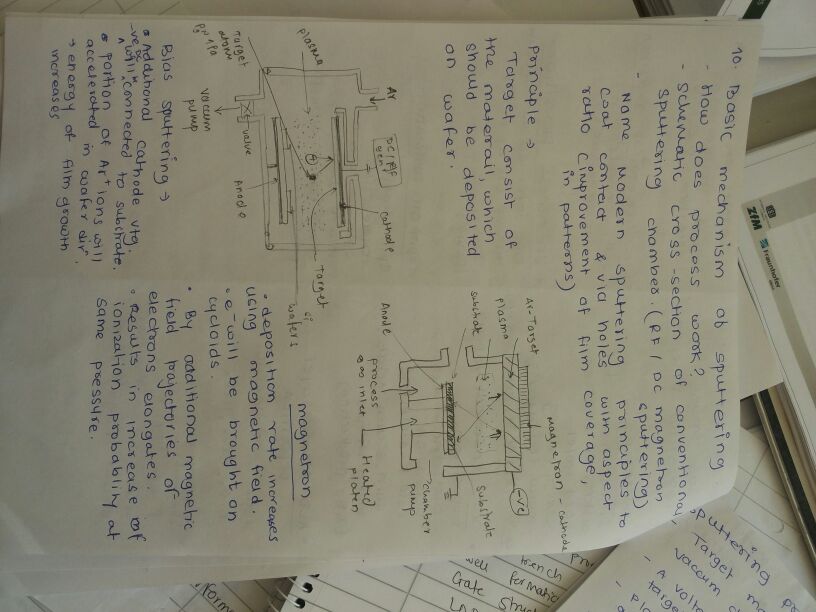 10. Basic mechanism of sputtering
- How does process work?
- schematic cross-section of conventional
sputtering chamber. (RF / DC magnetron
sputtering)
- Name modern sputtering principles to
coat contact & via holes with aspect
ratio (improvement of film coverage,
in patterns)
principle →
Target consist of
the materail, which
should be deposited
on wafer.
Ar
DC/RF
gen
cathode
Target
wafers
plasma
Target
atoms
P≈1Pa
valve
vaccum
pump
Anode
Bias sputtering →
• Additional cathode vtg.
-ve will connected to substrate.
• portion of Ar+ ions will
accelerated in wafer dirn,
→ energy of film growth
increases
Magnetron - cathode
Ar-Target
plasma
substrate
Anode
-ve
substrate
chamber
pump
process
gas inlet
Heated
platen
magnetron
• deposition rate increases
using magnetic field.
• e- will be brought on
cycloids.
• By additional magnetic
field trajectories of
electrons elongates.
• Results in increase of
ionization probablity at
same pressure.
ZfM
Fraunhofer
sputtering
- Target
vaccum
- A volt
targe
trench
well formatio
Gate Struc